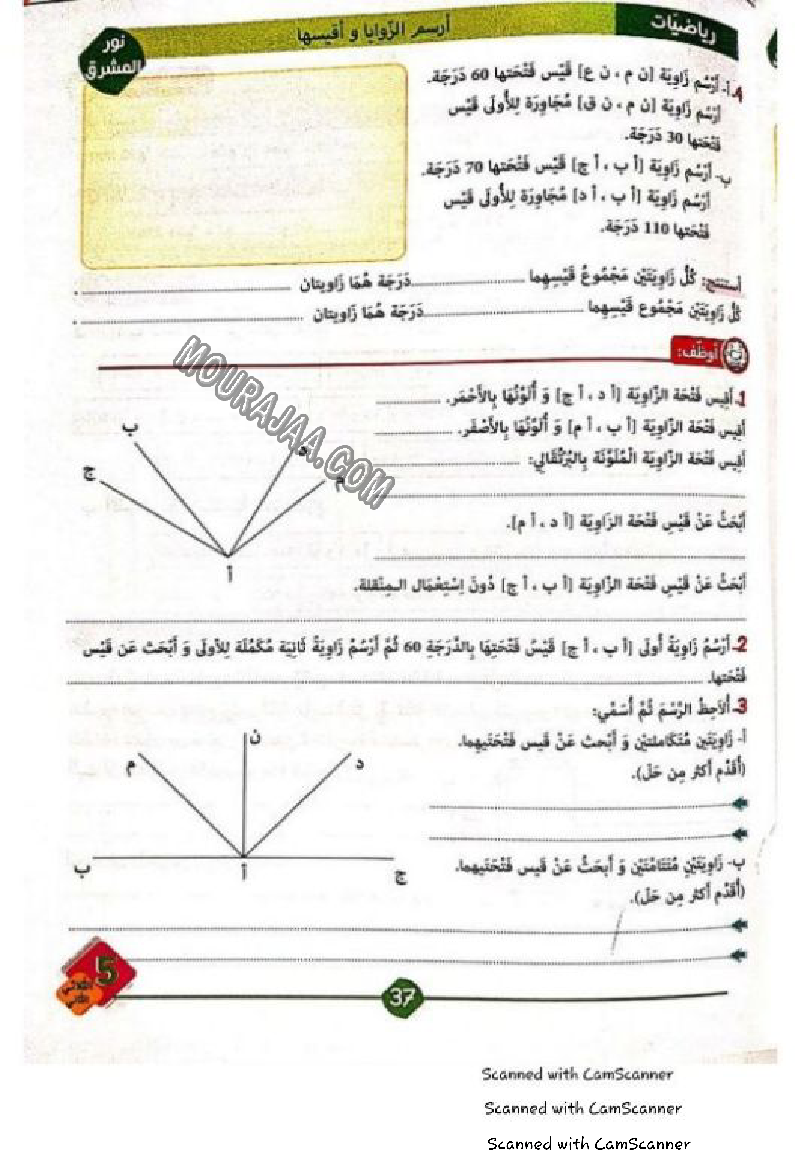 رياضيّات
أرسم الزّوايا و أقيسها
نور
المشرق
4 أ- أَرْسُم زَاوِيَة [ن م ، ن ع] قَيْس فَتْحَتها 60 دَرَجَة.
أَرْسُم زَاوِيَة [ن م ، ن ق] مُجَاوِرَة لِلأُولَى قَيْس
فَتْحَتها 30 دَرَجَة.
ب- أَرْسُم زَاوِيَة [أ ب ، أ ج] قَيْس فَتْحَتها 70 دَرَجَة.
أَرْسُم زَاوِيَة [أ ب ، أ د] مُجَاوِرَة لِلأُولَى قَيْس
فَتْحَتها 110 دَرَجَة.
أستنتج: كُلُّ زَاوِيَتَيْن مَجْمُوعُ قَيْسِهِما ....................دَرَجَة هُمَا زَاوِيتان .................... .
كُلُّ زَاوِيَتَيْن مَجْمُوع قَيْسِهِما ....................دَرَجَة هُمَا زَاوِيتان .................... .
أوظّف:
1- أَقِيس فَتْحَة الزَّاوِيَة [أ د ، أ ج] وَ أُلَوِّنُهَا بِالأَحْمَر. ....................
أَقِيس فَتْحَة الزَّاوِيَة [أ ب ، أ م] وَ أُلَوِّنُهَا بِالأَصْفَر. ....................
أَقِيس فَتْحَة الزَّاوِيَة الْمُلَوَّنَة بِالبُرْتُقَالِي: ....................
أَبْحَثُ عَنْ قَيْسِ فَتْحَة الزَّاوِيَة [أ د ، أ م].
أَبْحَثُ عَنْ قَيْسِ فَتْحَة الزَّاوِيَة [أ ب ، أ ج] دُونَ اِسْتِعْمَال المِنْقلة.
ب
ج
د
م
أ
2- أَرْسُمُ زَاوِيَةً أُولَى [أ ب ، أ ج] قَيْسُ فَتْحَتِهَا بِالدَّرَجَةِ 60 ثُمَّ أَرْسُمُ زَاوِيَةً ثَانِيَة مُكَمِّلَة لِلأولَى وَ أَبْحَث عَن قَيْس
فَتْحَتها. ....................
3- أُلاَحِظُ الرَّسْمَ ثُمَّ أُسَمِّي:
أ- زَاوِيَتَيْنِ مُتَكَامِلتَيْنِ وَ أَبْحث عَنْ قَيس فَتْحَتَيهِما.
(أُقَدِّم أَكثَر مِن حَلّ).
ب- زَاوِيَتَيْنِ مُتَتَامَّتَيْن وَ أَبْحَثُ عَنْ قَيس فَتْحَتَيهِما.
(أُقَدِّم أَكثَر مِن حَلّ).
ن
م
د
ب
أ
ج
5
الثلاثي
الثاني
37
MOURAJAA.COM
Scanned with CamScanner
Scanned with CamScanner
Scanned with CamScanner